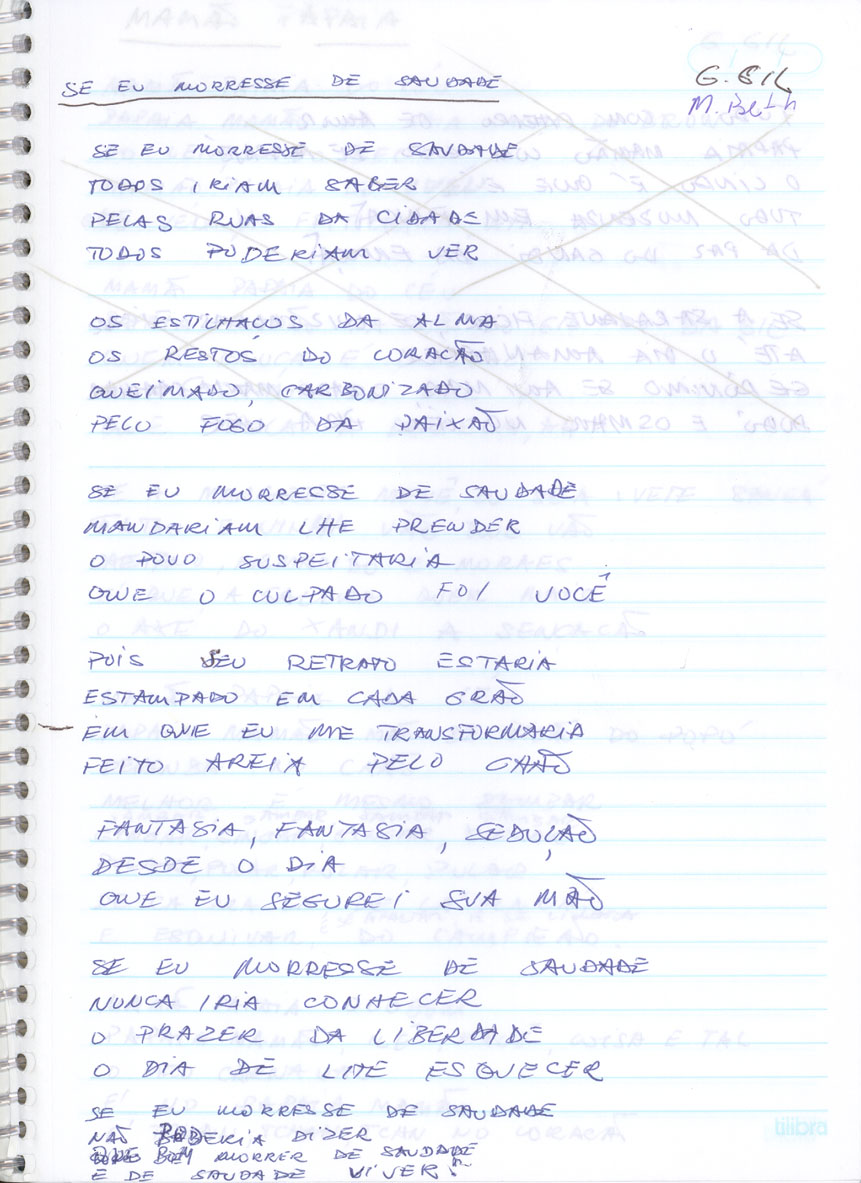 SE EU MORRESSE DE SAUDADE
G. GIL
M. Beth
SE EU MORRESSE DE SAUDADE
TODOS IRIAM SABER
PELAS RUAS DA CIDADE
TODOS PODERIAM VER
OS ESTILHAÇOS DA ALMA
OS RESTOS DO CORAÇÃO
QUEIMADO, CARBONIZADO
PELO FOGO DA PAIXÃO
SE EU MORRESSE DE SAUDADE
MANDARIAM LHE PRENDER
O POVO SUSPEITARIA
QUE O CULPADO FOI VOCÊ
POIS SEU RETRATO ESTARIA
ESTAMPADO EM CADA GRÃO
EM QUE EU ME TRANSFORMARIA
FEITO AREIA PELO CHÃO
FANTASIA, FANTASIA, SEDUÇÃO
DESDE O DIA
QUE EU SEGUREI SUA MÃO
SE EU MORRESSE DE SAUDADE
NUNCA IRIA CONHECER
O PRAZER DA LIBERDADE
O DIA DE LHE ESQUECER
SE EU MORRESSE DE SAUDADE
NÃO PODERIA DIZER
QUE BOM MORRER DE SAUDADE
E DE SAUDADE VIVER!
tilibra